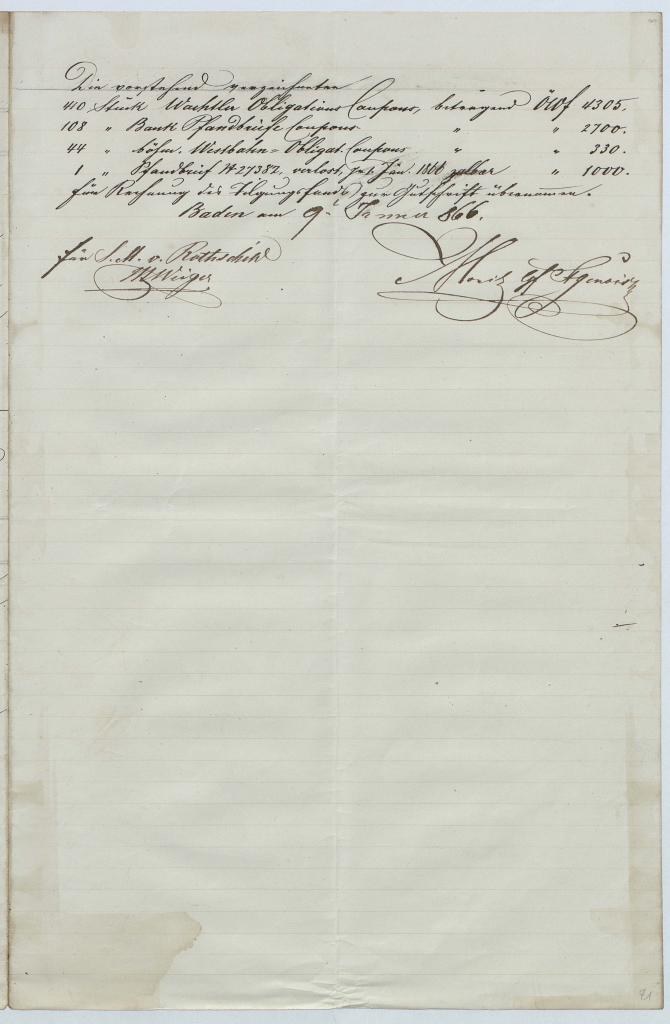 Die vorstehend verzeichneten
410 Stück Wechsler Obligations Coupons, betragend ÖWf 4305.
108 " Bank Pfandbriefe Coupons " " 2700.
44 " böhm. Westbahn=Obligat. Coupons " " 330.
1 " Pfandbrief № 27382, verlost, per Jän. 1866 zalbar " 1000.
für Rechnung des Tilgungsfonds zur Gutschrift übernommen.
Baden am 9. Jänner 866.
für S. M. v. Rothschild
Moriz Gf
21